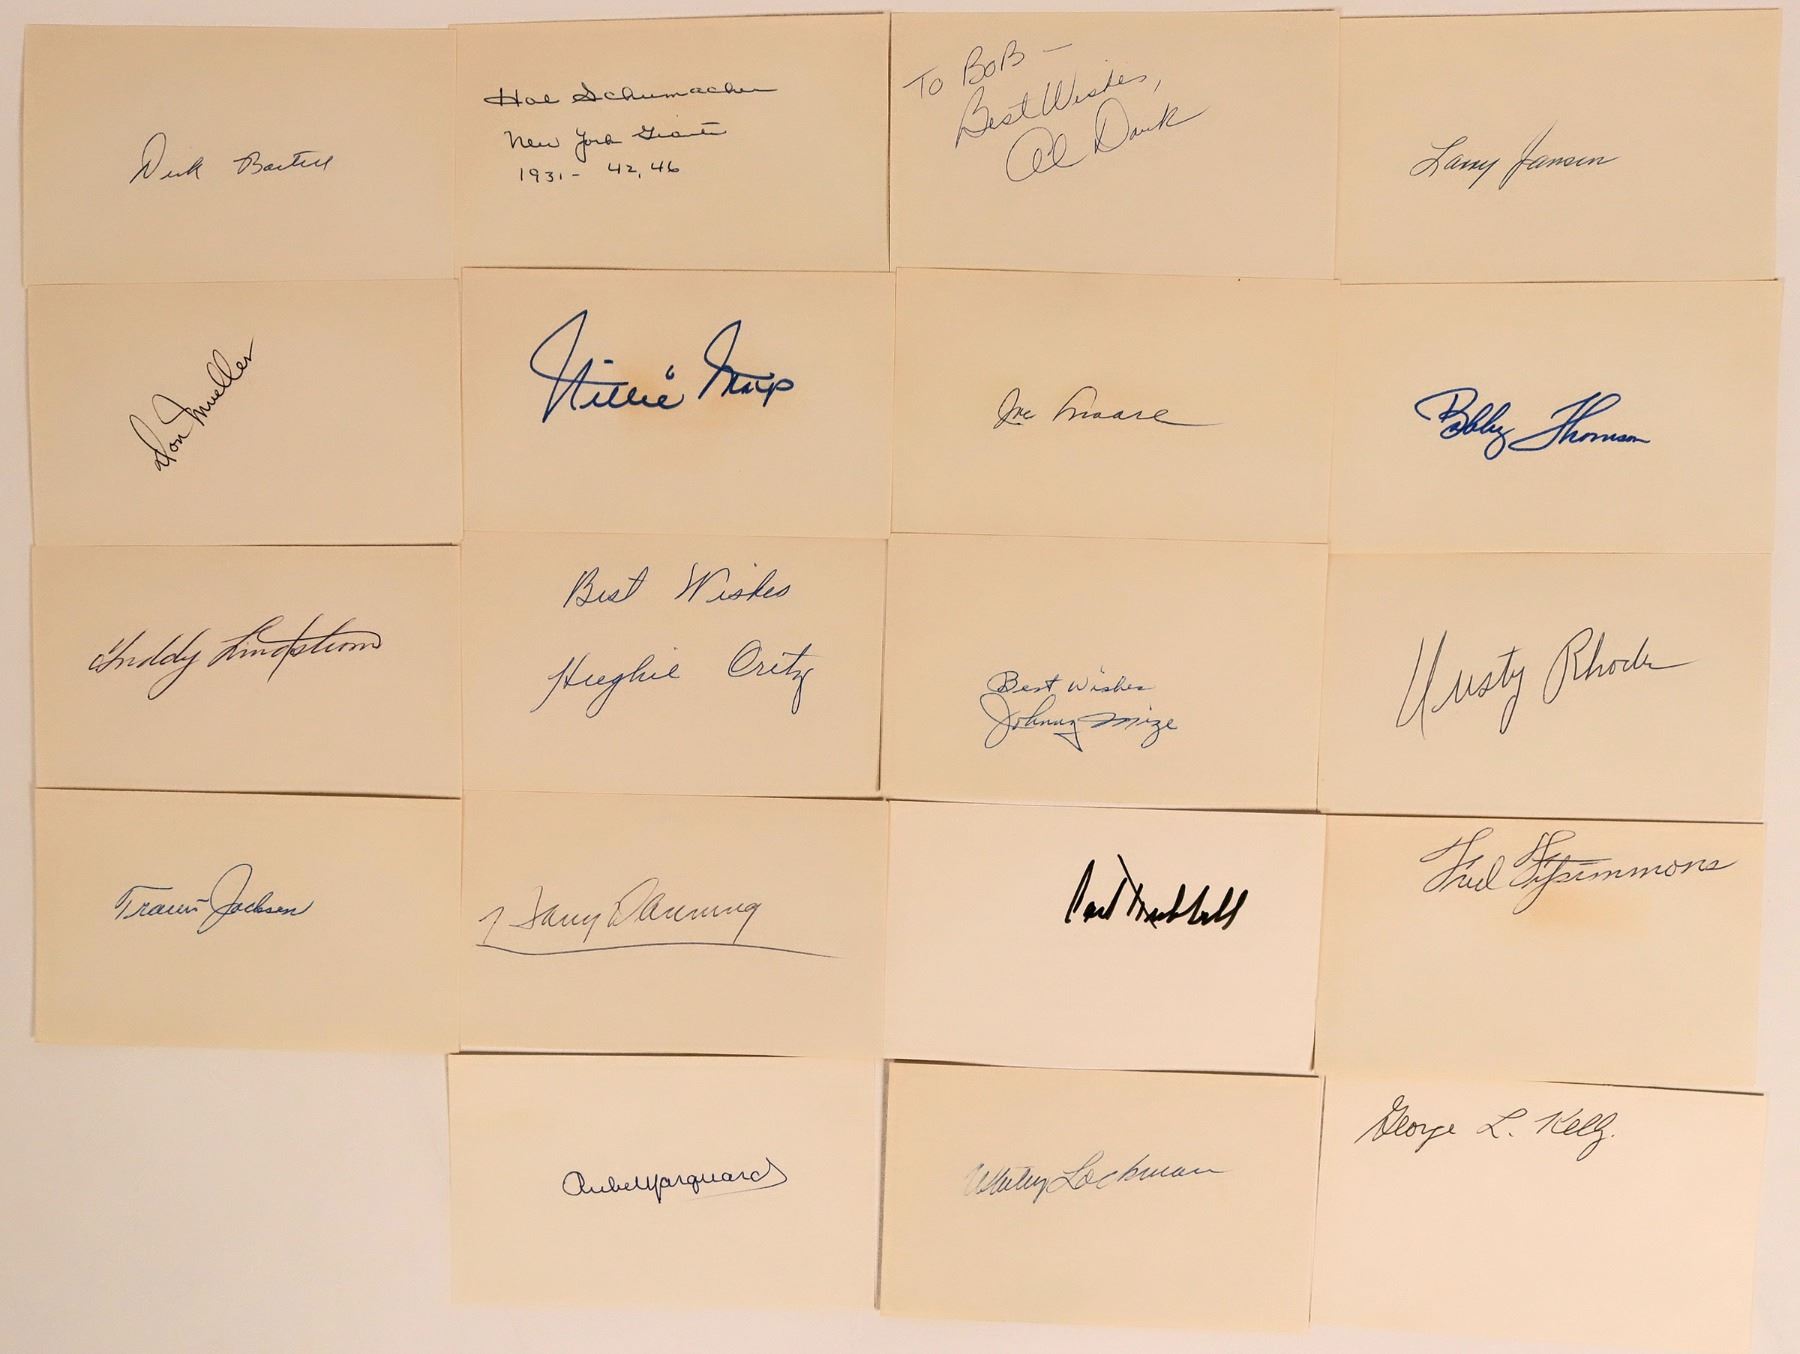 Dick Bartell
Hal Schumacher
New York Giants
1931- 42, 46
To Bob -
Best Wishes,
Al Dark
Larry Jansen
Don Mueller
Willie Mays
Joe Moore
Bobby Thomson
Freddy Lindstrom
Best Wishes
Hughie Critz
Best Wishes
Johnny Mize
Dusty Rhodes
Travis Jackson
Harry Danning
Carl Hubbell
Fred Fitzsimmons
Rube Marquard
Whitey Lockman
George L. Kelly.